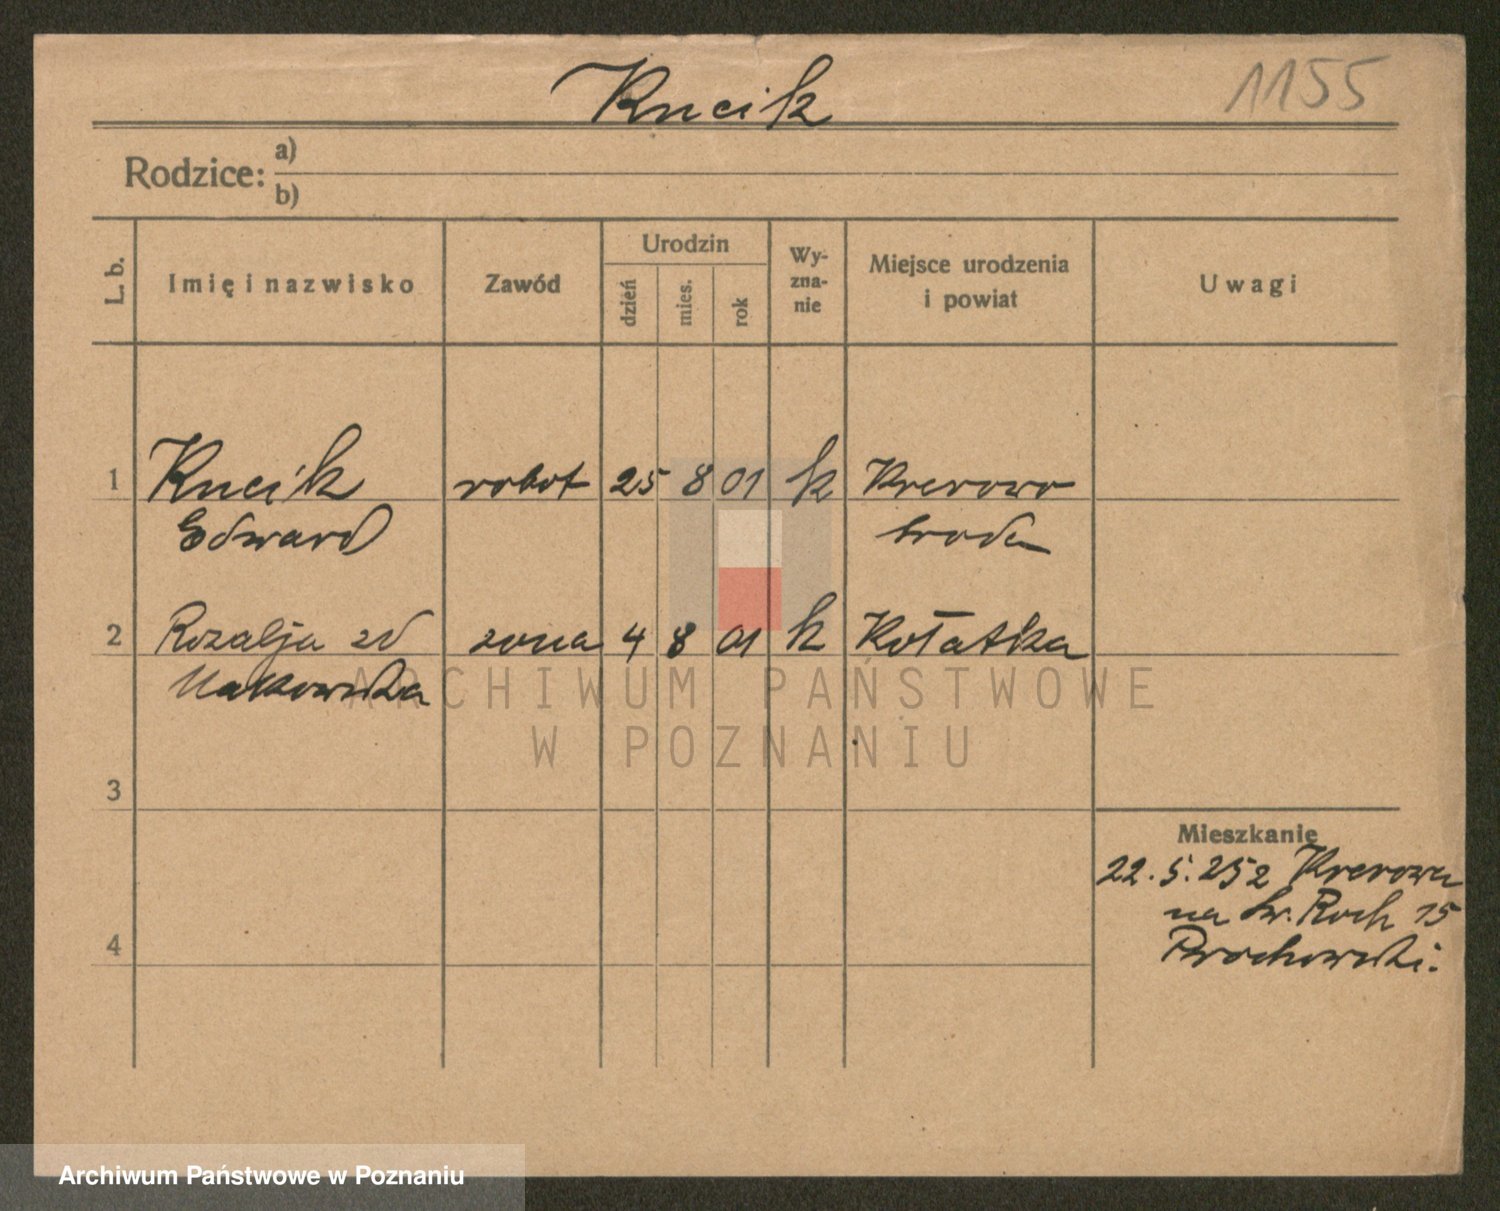 Kucik
1155
Rodzice: a)
b)
L. b.
Imię i nazwisko
Zawód
Urodzin
dzień
mies.
rok
Wy-
zna-
nie
Miejsce urodzenia
i powiat
Uwagi
1 Kucik robot 25 8 01 k Krerowo
Edward środa
2 Rozalja zd żona 4 8 01 k Kołatka
Makowska
ARCHIWUM PAŃSTWOWE
W POZNANIU
3
Mieszkanie
22. 5. 25 z Krerowa
na św. Roch 15
4 Prochowski.
Archiwum Państwowe w Poznaniu